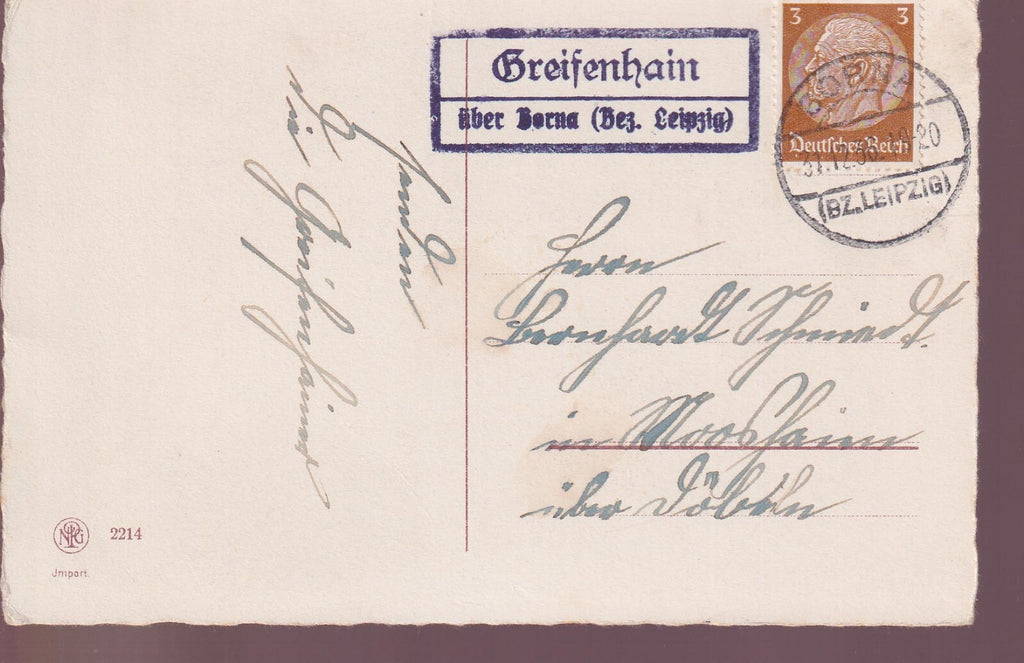 Greifenhain
über Borna (Bez. Leipzig)
3 3
Deutsches Reich
BORNA
31.12.36.19-20
(BZ. LEIPZIG)
senden
Die Greifenhainer
Herrn
Bernhardt Schmiedt.
in Moosheim
über Döbeln
NPG
2214
Import.